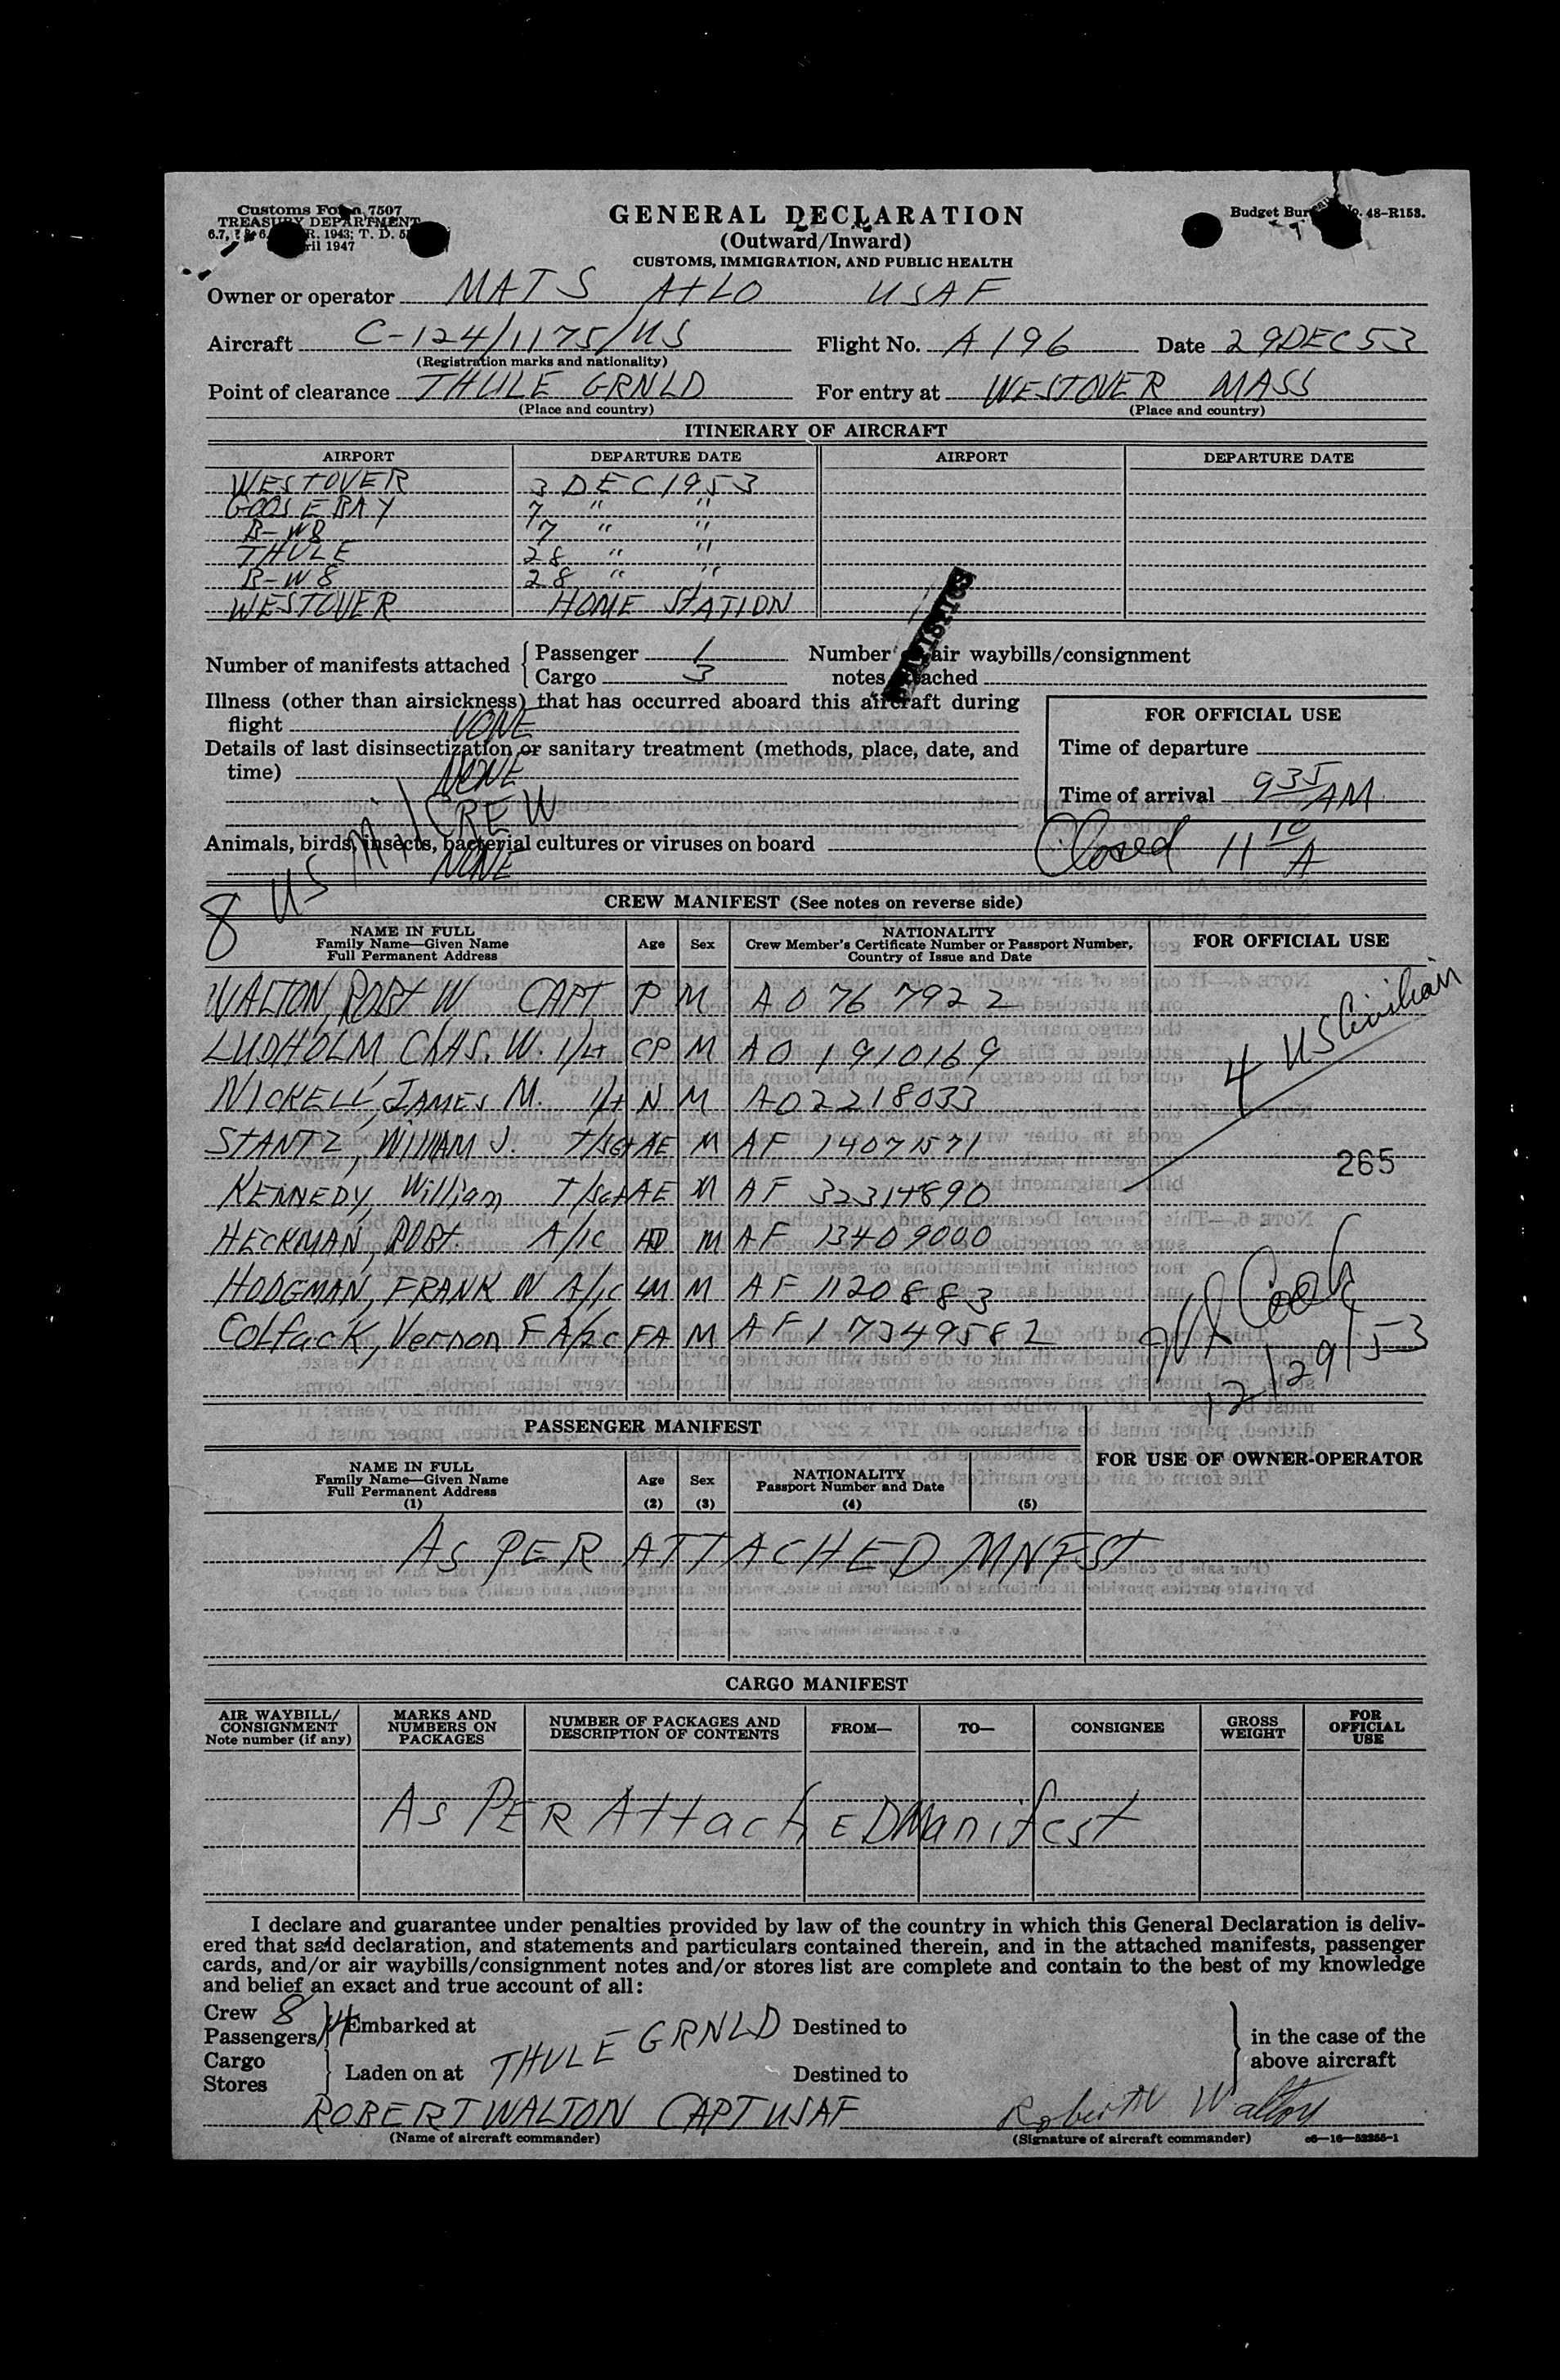 Customs Form 7507
TREASURY DEPARTMENT
April 1947
GENERAL DECLARATION
(Outward/Inward)
CUSTOMS, IMMIGRATION, AND PUBLIC HEALTH
Budget Bureau No. 48-R153.
Owner or operator MATS Atlo USAF
Aircraft C-124/1175/US Flight No. A196 Date 29DEC53
(Registration marks and nationality)
Point of clearance THULE GRNLD For entry at WESTOVER MASS
(Place and country) (Place and country)
ITINERARY OF AIRCRAFT
AIRPORT DEPARTURE DATE AIRPORT DEPARTURE DATE
WESTOVER 3 DEC 1953
GOOSE BAY 7 " "
B-W8 17 " "
THULE 28 " "
B-W8 28 " "
WESTOVER HOME STATION
STATISTICS
Number of manifests attached { Passenger 1 Number of air waybills/consignment
Cargo 3 notes attached
Illness (other than airsickness) that has occurred aboard this aircraft during
flight NONE
FOR OFFICIAL USE
Details of last disinsectization or sanitary treatment (methods, place, date, and
time) NONE
Time of departure
Time of arrival 9 35 AM
8 US Mil CREW
Animals, birds, insects, bacterial cultures or viruses on board
NONE
Closed 11 10 A
CREW MANIFEST (See notes on reverse side)
NAME IN FULL
Family Name—Given Name
Full Permanent Address
Age Sex
NATIONALITY
Crew Member's Certificate Number or Passport Number,
Country of Issue and Date
FOR OFFICIAL USE
WALTON, ROBt W CAPT P M AO 767922
LUDHOLM, CHAS. W. 1/Lt CP M AO 1910169
NICKELL, JAMES M. 1/Lt N M AO2218033
STANTZ, WILLIAM J. T/SGt AE M AF 14071571
KENNEDY, William T/Sgt AE M AF 32314890
HECKMAN, ROBt. A/1C AD M AF 13409000
HODGMAN, FRANK W A/1C LM M AF 1120883
Colfack, Vernon F A/2C FA M AF17349582
4 US Civilian
265
Cook
12/29/53
PASSENGER MANIFEST
NAME IN FULL
Family Name—Given Name
Full Permanent Address
(1)
Age
(2)
Sex
(3)
NATIONALITY
Passport Number and Date
(4) (5)
FOR USE OF OWNER-OPERATOR
AS PER ATTACHED MNFST
CARGO MANIFEST
AIR WAYBILL/
CONSIGNMENT
Note number (if any)
MARKS AND
NUMBERS ON
PACKAGES
NUMBER OF PACKAGES AND
DESCRIPTION OF CONTENTS
FROM— TO— CONSIGNEE
GROSS
WEIGHT
FOR
OFFICIAL
USE
AS PER AttachED Manifest
I declare and guarantee under penalties provided by law of the country in which this General Declaration is deliv-
ered that said declaration, and statements and particulars contained therein, and in the attached manifests, passenger
cards, and/or air waybills/consignment notes and/or stores list are complete and contain to the best of my knowledge
and belief an exact and true account of all:
Crew 8
Passengers 4 } Embarked at THULE GRNLD Destined to
Cargo
Stores } Laden on at Destined to
} in the case of the
above aircraft
ROBERT WALTON CAPT USAF Robert W Walton
(Name of aircraft commander) (Signature of aircraft commander) c6—16—52255-1